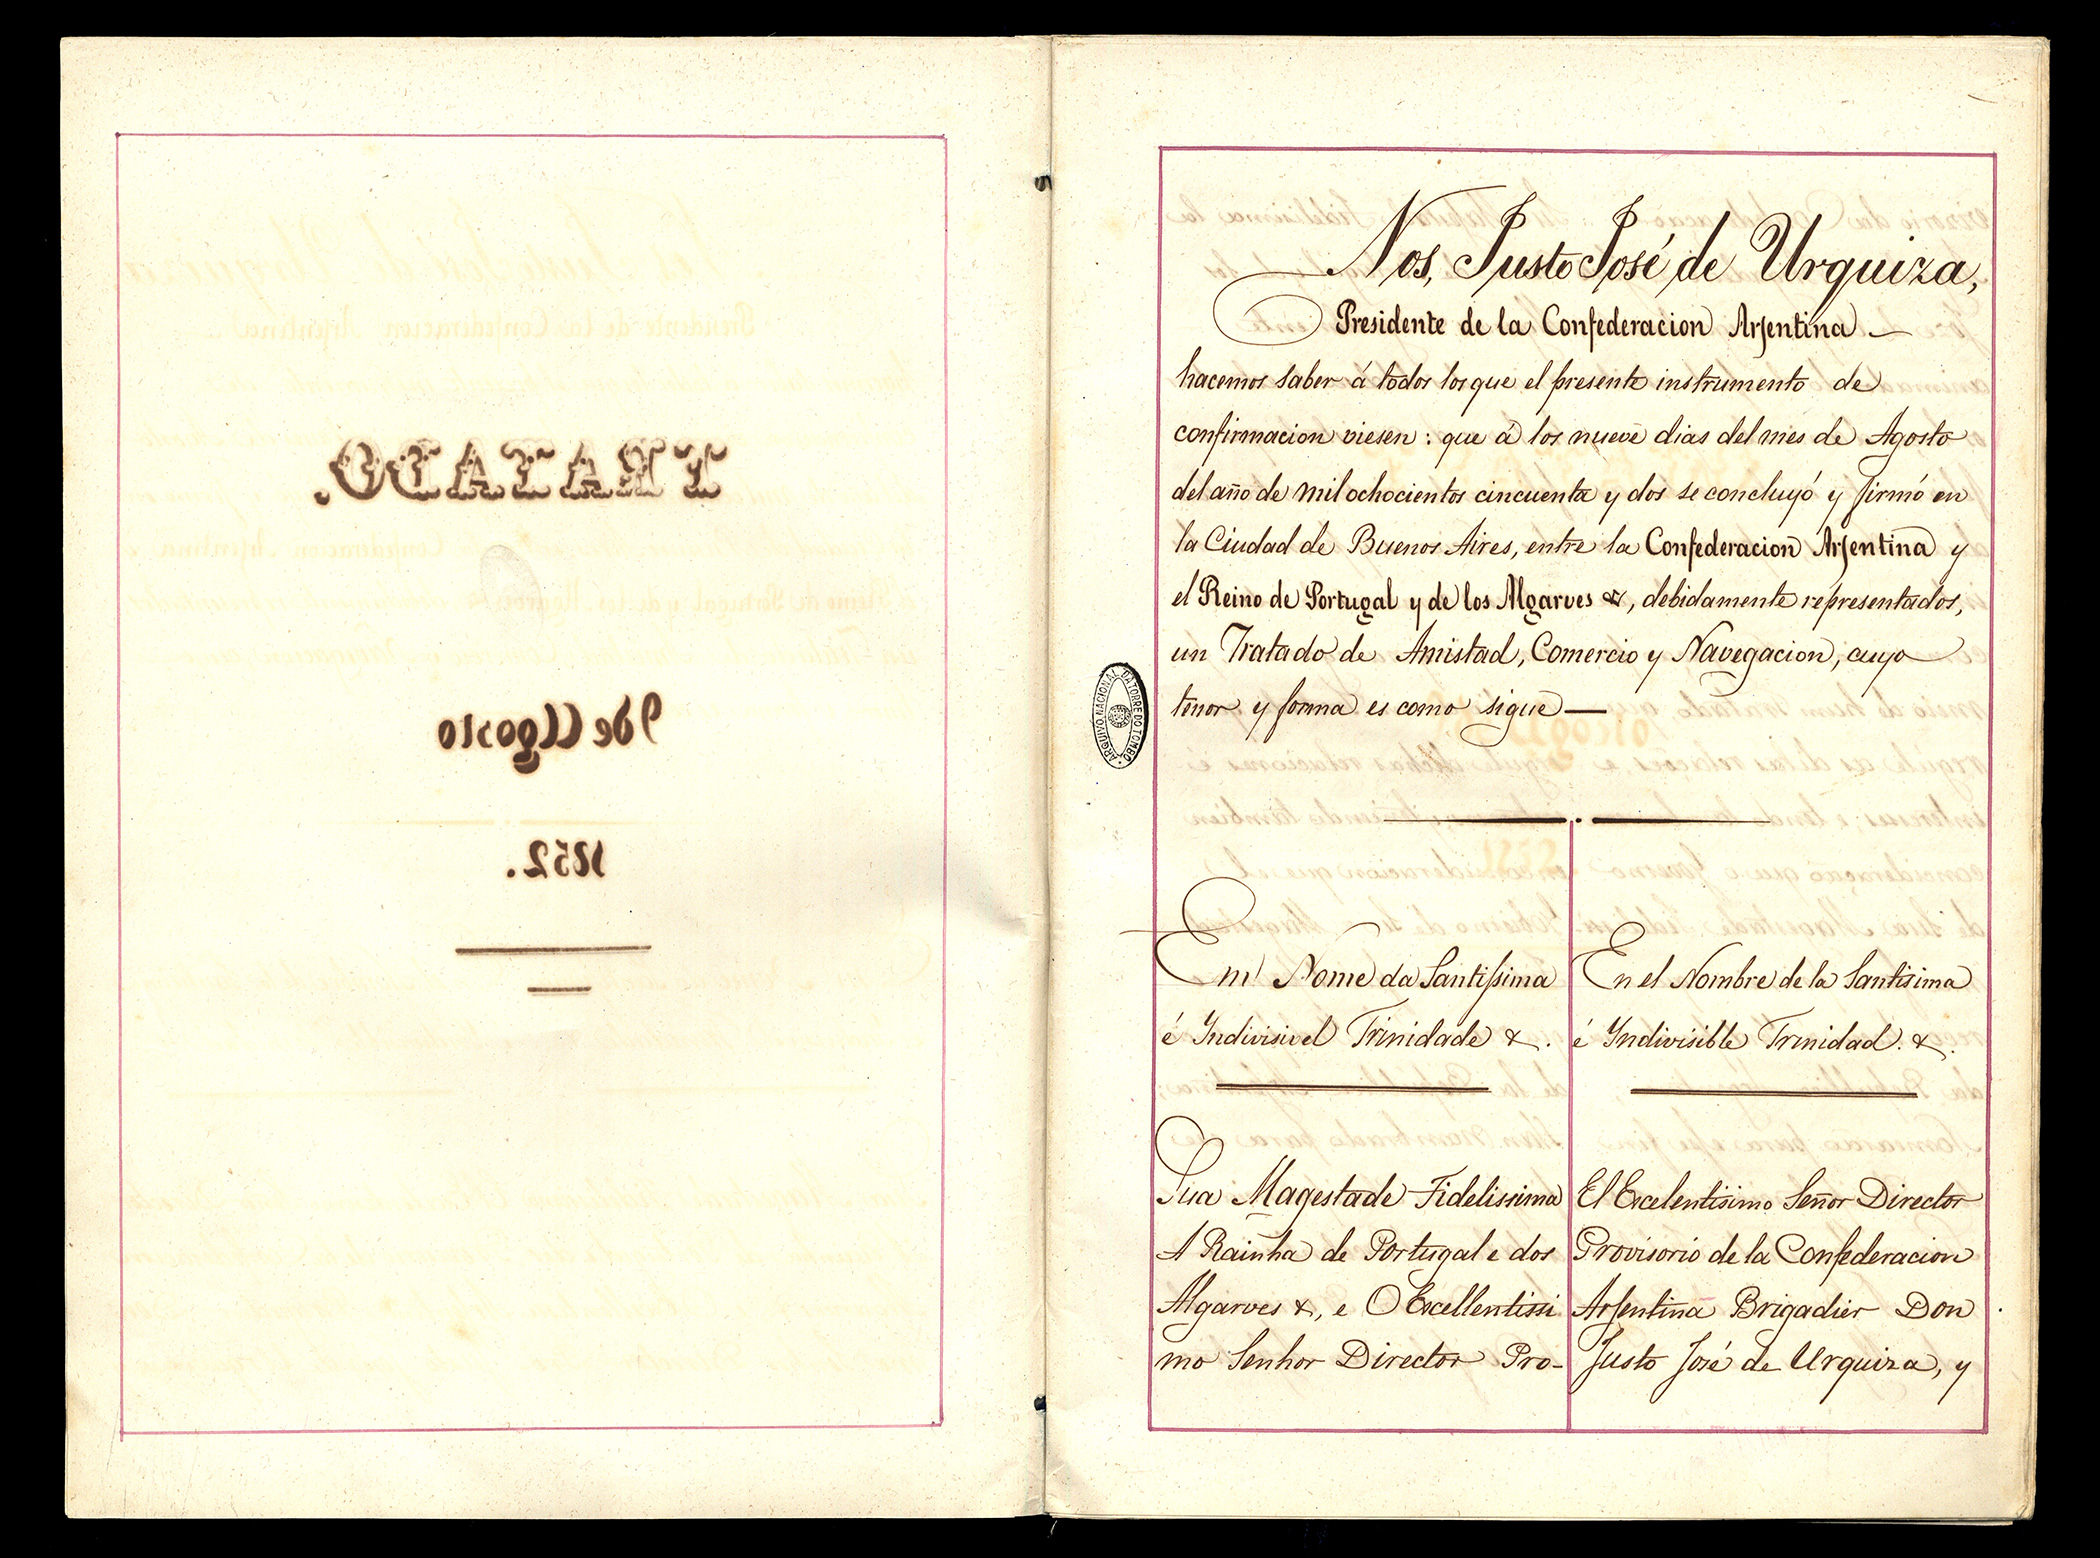 TRATADO.
9 de Agosto
1852.
Nos, Justo José de Urquiza,
Presidente de la Confederacion Arjentina
hacemos saber á todos los que el presente instrumento de
confirmacion viesen: que á los nueve dias del mes de Agosto
del año de mil ochocientos cincuenta y dos se concluyó y firmó en
la Ciudad de Buenos Aires, entre la Confederacion Arjentina y
el Reino de Portugal y de los Algarves &, debidamente representados,
un Tratado de Amistad, Comercio y Navegacion, cuyo
tenor y forma es como sigue—
ARQUIVO NACIONAL DA TORRE DO TOMBO
Em Nome da Santissima
é Indivisivel Trinidade &.
Sua Magestade Fidelissima
A Rainha de Portugal e dos
Algarves &, e O Excellentissi
mo Senhor Director Pro-
En el Nombre de la Santisima
é Indivisible Trinidad. &.
El Escelentisimo Señor Director
Provisorio de la Confederacion
Arjentina Brigadier Don
Justo José de Urquiza, y